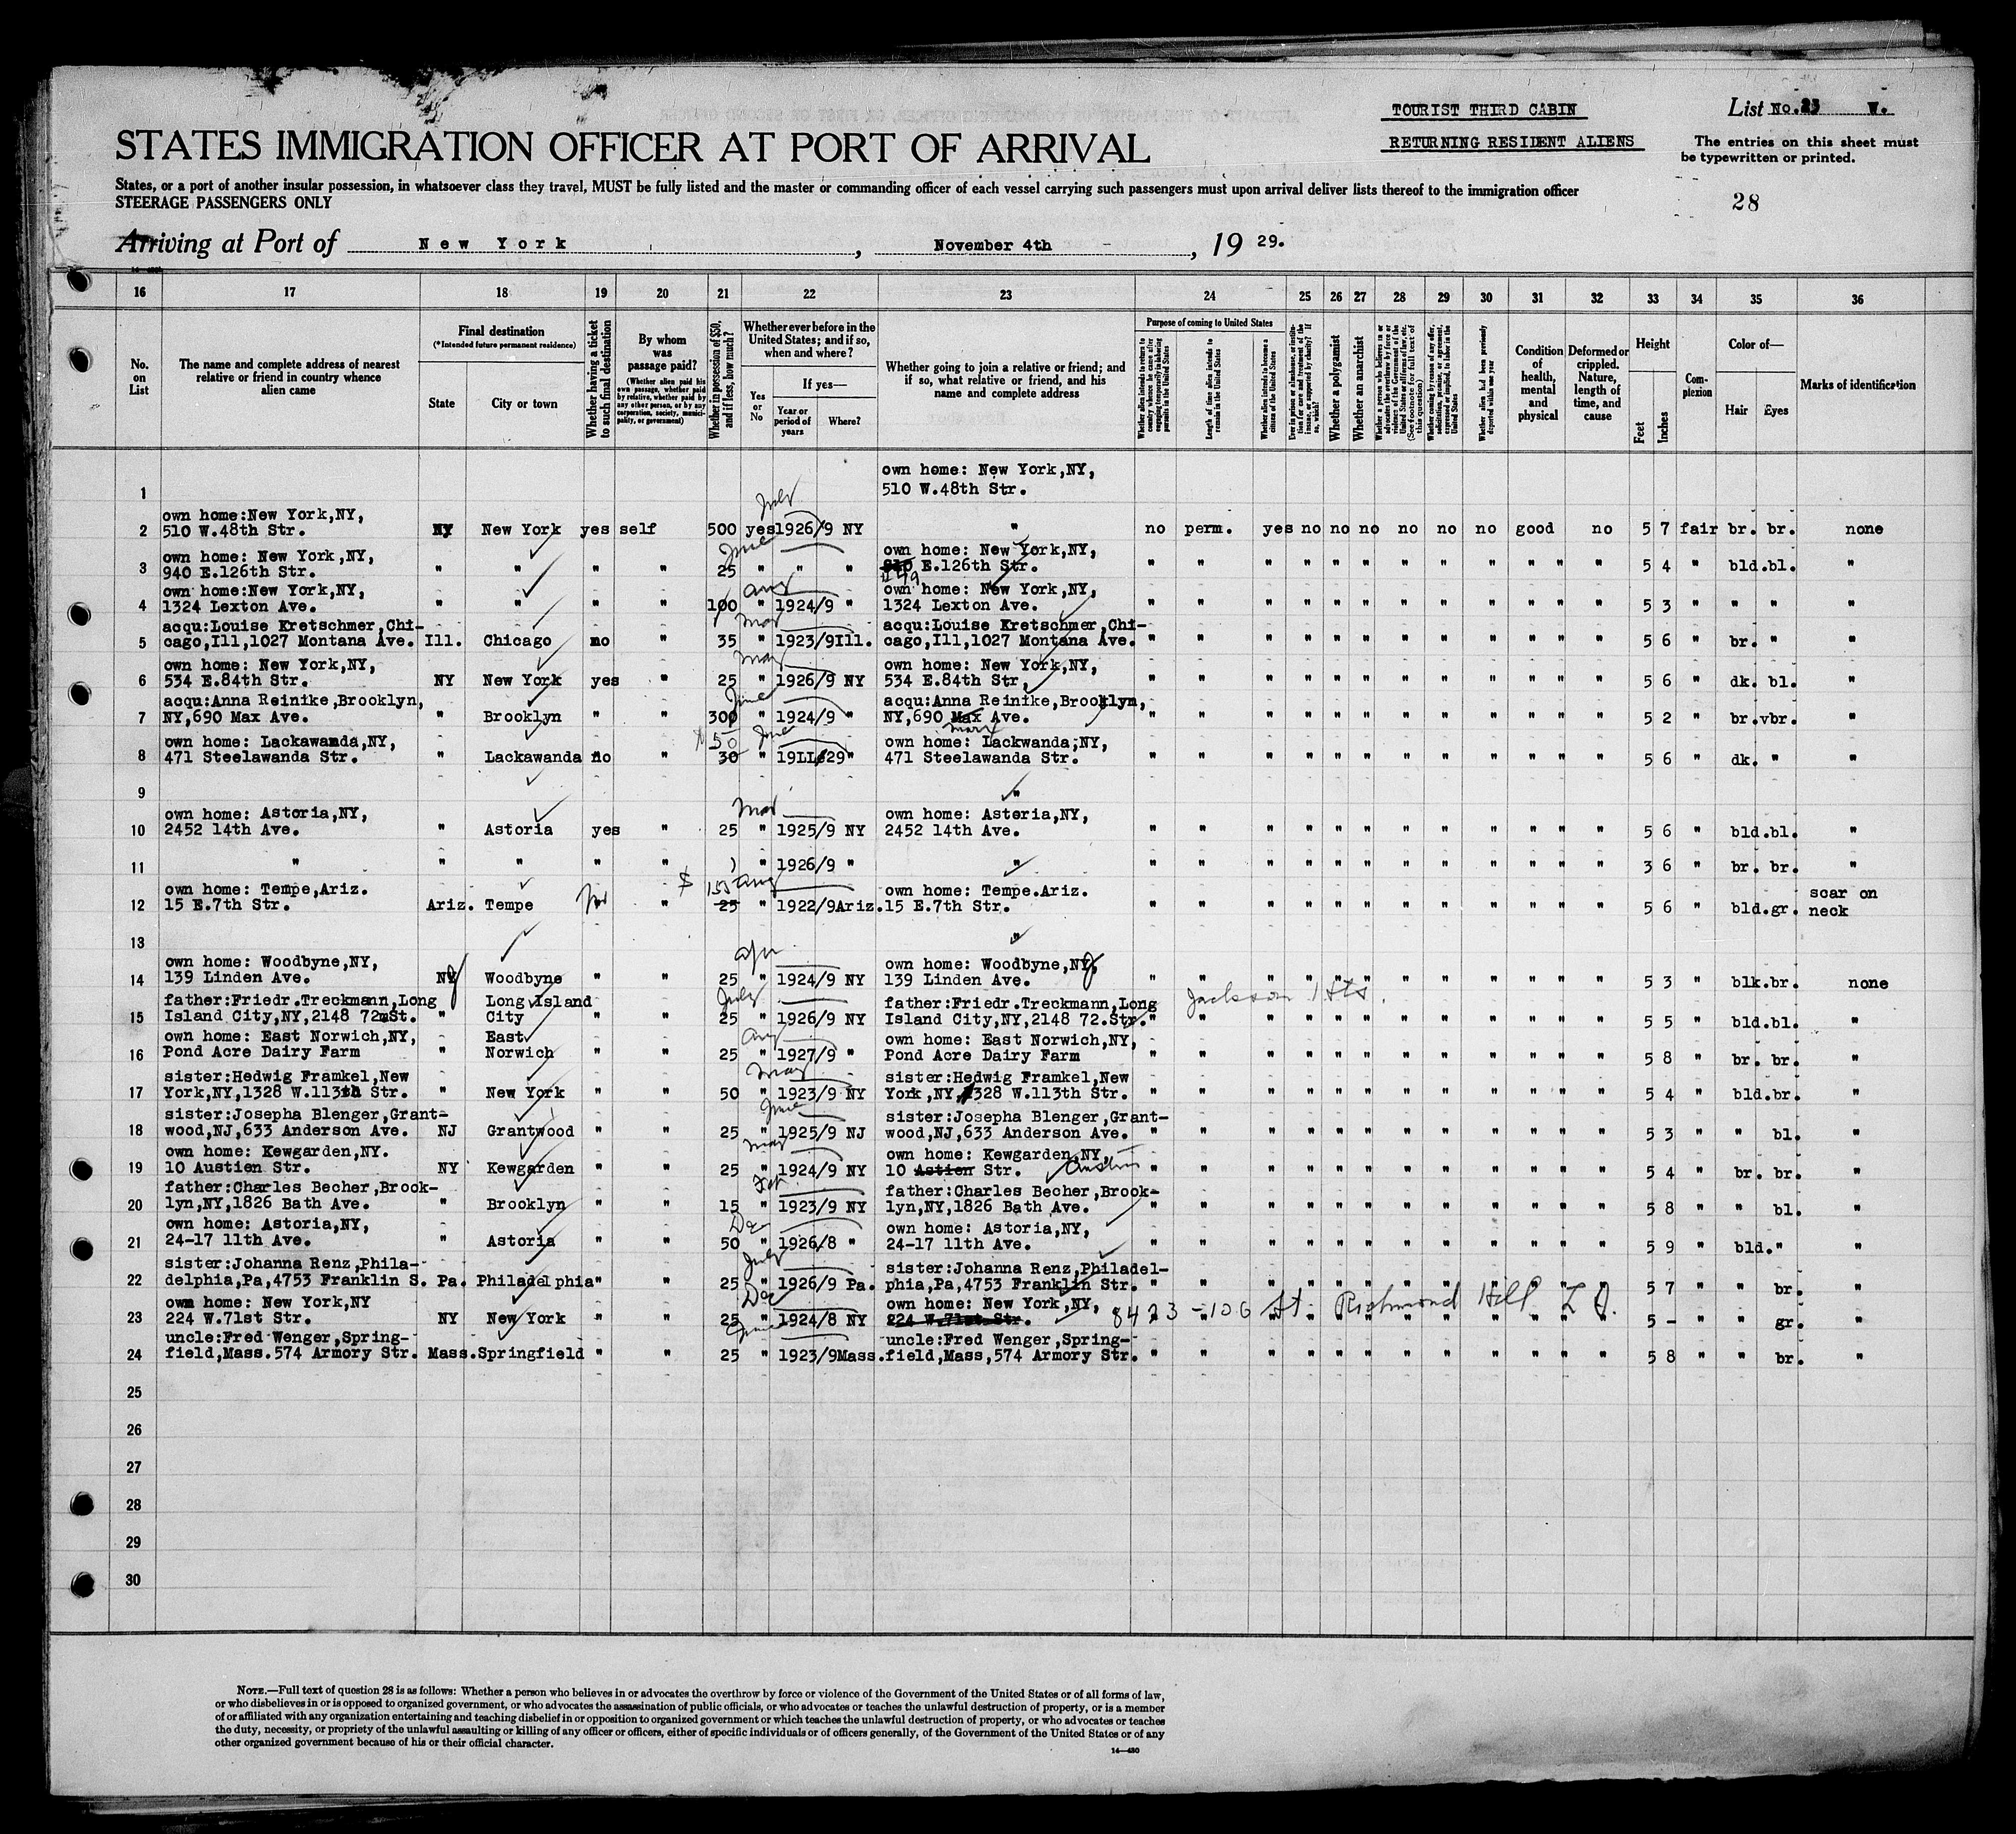 TOURIST THIRD CABIN
List No. 23 W.
STATES IMMIGRATION OFFICER AT PORT OF ARRIVAL
RETURNING RESIDENT ALIENS
The entries on this sheet must
be typewritten or printed.
States, or a port of another insular possession, in whatsoever class they travel, MUST be fully listed and the master or commanding officer of each vessel carrying such passengers must upon arrival deliver lists thereof to the immigration officer
STEERAGE PASSENGERS ONLY
28
Arriving at Port of New York, November 4th, 1929.
16 17 18 19 20 21 22 23 24 25 26 27 28 29 30 31 32 33 34 35 36
No. on List
The name and complete address of nearest relative or friend in country whence alien came
Final destination
(*Intended future permanent residence)
State
City or town
Whether having a ticket to such final destination
By whom was passage paid?
(Whether alien paid his own passage, whether paid by relative, whether paid by any other person, or by any corporation, society, municipality, or government)
Whether in possession of $50, and if less, how much?
Whether ever before in the United States; and if so, when and where?
Yes or No
If yes—
Year or period of years
Where?
Whether going to join a relative or friend; and if so, what relative or friend, and his name and complete address
Purpose of coming to United States
Whether alien intends to return to country whence he came after engaging temporarily in laboring pursuits in the United States
Length of time alien intends to remain in the United States
Whether alien intends to become a citizen of the United States
Whether a polygamist
Whether an anarchist
(See footnote for full text of this question)
Whether alien had been previously deported within one year
Condition of health, mental and physical
Deformed or crippled. Nature, length of time, and cause
Height
Feet
Inches
Complexion
Color of—
Hair
Eyes
Marks of identification
1 own home: New York,NY,
510 W.48th Str.
July
2 own home:New York,NY,
510 W.48th Str. NY New York yes self 500 yes 1926/9 NY " no perm. yes no no no no no no good no 5 7 fair br. br. none
June
3 own home: New York,NY,
940 E.126th Str. " " " " 25 " " " own home: New York,NY,
940 E.126th Str. " " " " " " " " " " " " 5 4 " bld.bl. "
Aug
4 own home:New York,NY,
1324 Lexton Ave. " " " " 100 " 1924/9 " own home: New York,NY,
1324 Lexton Ave. " " " " " " " " " " " " 5 3 " " " "
Mar
5 acqu:Louise Kretschmer,Chi-
cago,Ill,1027 Montana Ave. Ill. Chicago no " 35 " 1923/9Ill. acqu:Louise Kretschmer,Chi-
cago,Ill,1027 Montana Ave. " " " " " " " " " " " " 5 6 " br. " "
May
6 own home: New York,NY,
534 E.84th Str. NY New York yes " 25 " 1926/9 NY own home: New York,NY,
534 E.84th Str, " " " " " " " " " " " " 5 6 " dk. bl. "
June
7 acqu:Anna Reinike,Brooklyn,
NY,690 Max Ave. " Brooklyn " " 300 " 1924/9 " acqu:Anna Reinike,Brooklyn,
NY,690 Max Ave. " " " " " " " " " " " " 5 2 " br.vbr. "
Marx
50 June
8 own home: Lackawanda,NY,
471 Steelawanda Str. " Lackawanda no " 30 " 29" own home: Lackwanda,NY,
471 Steelawanda Str. " " " " " " " " " " " " 5 6 " dk. " "
9 "
Mar
10 own home: Astoria,NY,
2452 14th Ave. " Astoria yes " 25 " 1925/9 NY own home: Astoria,NY,
2452 14th Ave. " " " " " " " " " " " " 5 6 " bld.bl. "
11 " " " " " " 1926/9 " " " " " " " " " " " " " " 3 6 " br. br. "
$ 155 Aug
12 own home: Tempe,Ariz.
15 E.7th Str. Ariz. Tempe " 25 " 1922/9Ariz. own home: Tempe.Ariz.
15 E.7th Str. " " " " " " " " " " " " 5 6 " bld.gr. scar on
neck
13 "
Apr
14 own home: Woodbyne,NY,
139 Linden Ave. NJ Woodbyne " " 25 " 1924/9 NY own home: Woodbyne,NJ,
139 Linden Ave. " " " " " " " " " " " " 5 3 " blk.br. none
July
Jackson Hts.
15 father:Friedr.Treckmann,Long
Island City,NY,2148 72mSt. " Long Island
City " " 25 " 1926/9 NY father:Friedr.Treckmann,Long
Island City,NY,2148 72.Str. " " " " " " " " " " " " 5 5 " bld.bl. "
Aug
16 own home: East Norwich,NY,
Pond Acre Dairy Farm " East
Norwich " " 25 " 1927/9 " own home: East Norwich,NY,
Pond Acre Dairy Farm " " " " " " " " " " " " 5 8 " br. br. "
May
17 sister:Hedwig Framkel,New
York,NY,1328 W.113th Str. " New York " " 50 " 1923/9 NY sister:Hedwig Framkel,New
York,NY,1328 W.113th Str. " " " " " " " " " " " " 5 4 " bld.br. "
June
18 sister:Josepha Blenger,Grant-
wood,NJ,633 Anderson Ave. NJ Grantwood " " 25 " 1925/9 NJ sister:Josepha Blenger,Grant-
wood,NJ,633 Anderson Ave. " " " " " " " " " " " " 5 3 " " bl. "
May
19 own home: Kewgarden,NY.
10 Austien Str. NY Kewgarden " " 25 " 1924/9 NY own home: Kewgarden,NY,
10 Astien Str. Austin " " " " " " " " " " " " 5 4 " br. br. "
Feb
20 father:Charles Becher,Brook-
lyn,NY,1826 Bath Ave. " Brooklyn " " 15 " 1923/9 NY father:Charles Becher,Brook-
lyn,NY,1826 Bath Ave. " " " " " " " " " " " " 5 8 " " bl. "
Dec
21 own home: Astoria,NY,
24-17 11th Ave. " Astoria " " 50 " 1926/8 " own home: Astoria,NY,
24-17 11th Ave. " " " " " " " " " " " " 5 9 " bld." "
July
22 sister:Johanna Renz,Phila-
delphia,Pa,4753 Franklin S. Pa. Philadelphia" " 25 " 1926/9 Pa. sister:Johanna Renz,Philadel-
phia,Pa,4753 Franklin Str. " " " " " " " " " " " " 5 7 " " br. "
Dec
23 own home: New York,NY
224 W.71st Str. NY New York " " 25 " 1924/8 NY own home: New York,NY,
224 W.71st Str. 8423-106 St. Richmond Hill L I. " " " " " " " " " " " " 5 - " " gr. "
June
24 uncle:Fred Wenger,Spring-
field,Mass.574 Armory Str. Mass.Springfield " " 25 " 1923/9Mass. uncle:Fred Wenger,Spring-
field,Mass,574 Armory Str. " " " " " " " " " " " " 5 8 " " br. "
25
26
27
28
29
30
NOTE.—Full text of question 28 is as follows: Whether a person who believes in or advocates the overthrow by force or violence of the Government of the United States or of all forms of law,
or who disbelieves in or is opposed to organized government, or who advocates the assassination of public officials, or who advocates or teaches the unlawful destruction of property, or is a member
of or affiliated with any organization entertaining and teaching disbelief in or opposition to organized government or which teaches the unlawful destruction of property, or who advocates or teaches
the duty, necessity, or propriety of the unlawful assaulting or killing of any officer or officers, either of specific individuals or of officers generally, of the Government of the United States or of any
other organized government because of his or their official character.
14—430